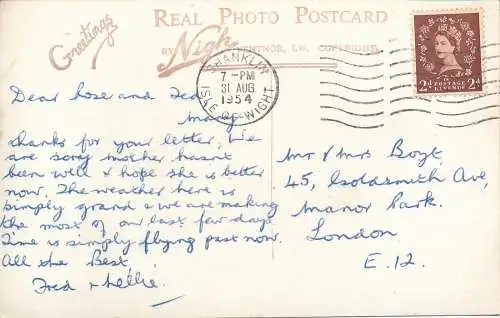 Greetings
REAL PHOTO POSTCARD
BY Nigh VENTNOR, I.W. COPYRIGHT.
SHANKLIN
7 - PM
31 AUG
1954
ISLE OF WIGHT
POSTAGE
REVENUE
2d 2d
Dear Rose and Fred
Many
thanks for your letter. We
are sorry mother hasn't
been well & hope she is better
now. The weather here is
simply grand & we are making
the most of our last few days
Time is simply flying past now.
All the Best,
Fred & Nellie.
Mr & Mrs Boyt,
45, Goldsmith Ave,
Manor Park.
London
E.12.